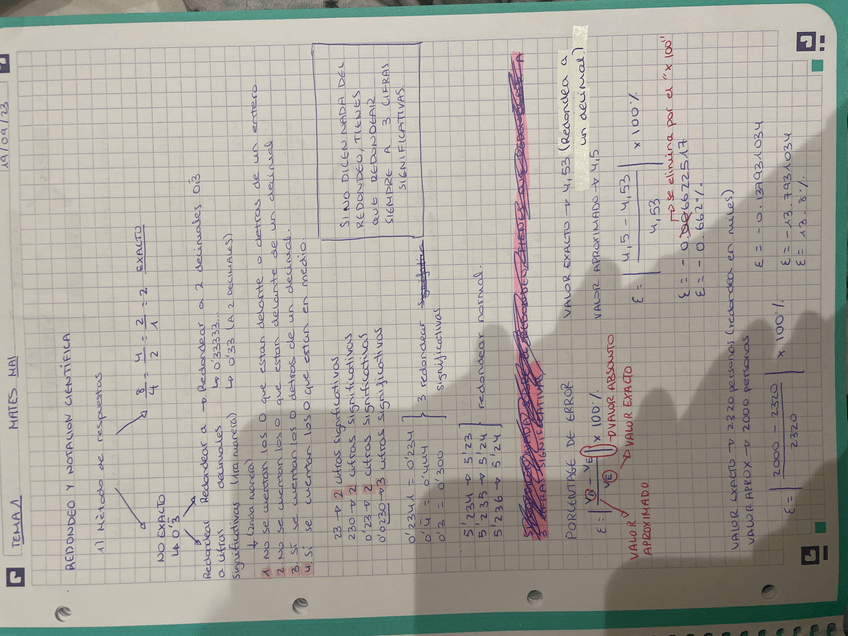 TEMA 1 MATES NAI 19/09/23
REDONDEO Y NOTACIÓN CIENTÍFICA
1) Método de respuestas
NO EXACTO
↳ 0'3
8/4 = 4/2 = 2/1 = 2 EXACTO
Redondear a cifras significativas (1ra manera)
Redondear a decimales
→ Redondear a 2 decimales 0'3
↳ 0'33333...
↳ 0'33 (A 2 DECIMALES)
↓ (1ra manera)
1. No se cuentan los 0 que estan delante o detras de un entero
2. No se cuentan los 0 que estan delante de un decimal
3. Si se cuentan los 0 detras de un decimal.
4. Si se cuentan los 0 que estan en medio.
23 → 2 cifras significativas
230 → 2 cifras significativas
0'23 → 2 cifras significativas
0'0230 → 3 cifras significativas
SI NO DICEN NADA DEL
REDONDEO, TIENES
QUE REDONDEAR
SIEMPRE A 3 CIFRAS
SIGNIFICATIVAS
0'2341 = 0'234
0'4 = 0'444
0'3 = 0'300
3 redondear
significativas
5'234 → 5'23
5'235 → 5'24
5'236 → 5'24
redondear normal.
3 CIFRAS SIGNIFICATIVAS
PORCENTAGE DE ERROR
VALOR EXACTO → 4,53 (Redondea a
un decimal)
VALOR APROXIMADO → 4,5
ε = |VA - VE / VE| × 100%
→ VALOR ABSOLUTO
→ VALOR EXACTO
VALOR
APROXIMADO
ε = |4,5 - 4,53 / 4,53| × 100%
→ se elimina por el "x 100"
ε = - 0.006622517
ε = - 0.662%
VALOR EXACTO → 2320 personas (redondea en miles)
VALOR APROX → 2000 personas
ε = |2000 - 2320 / 2320| × 100%
ε = - 0.137931034
ε = - 13.7931034
ε = - 13.8%